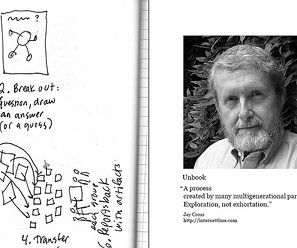 2. Break out:
question, draw
an answer
(or a guess)
4. Transfer
each group
6. Reportback
with artifacts
Unbook
"A process
created by many multigenerational par
Exploration, not exhortation."
Jay Cross
http://internettime.com